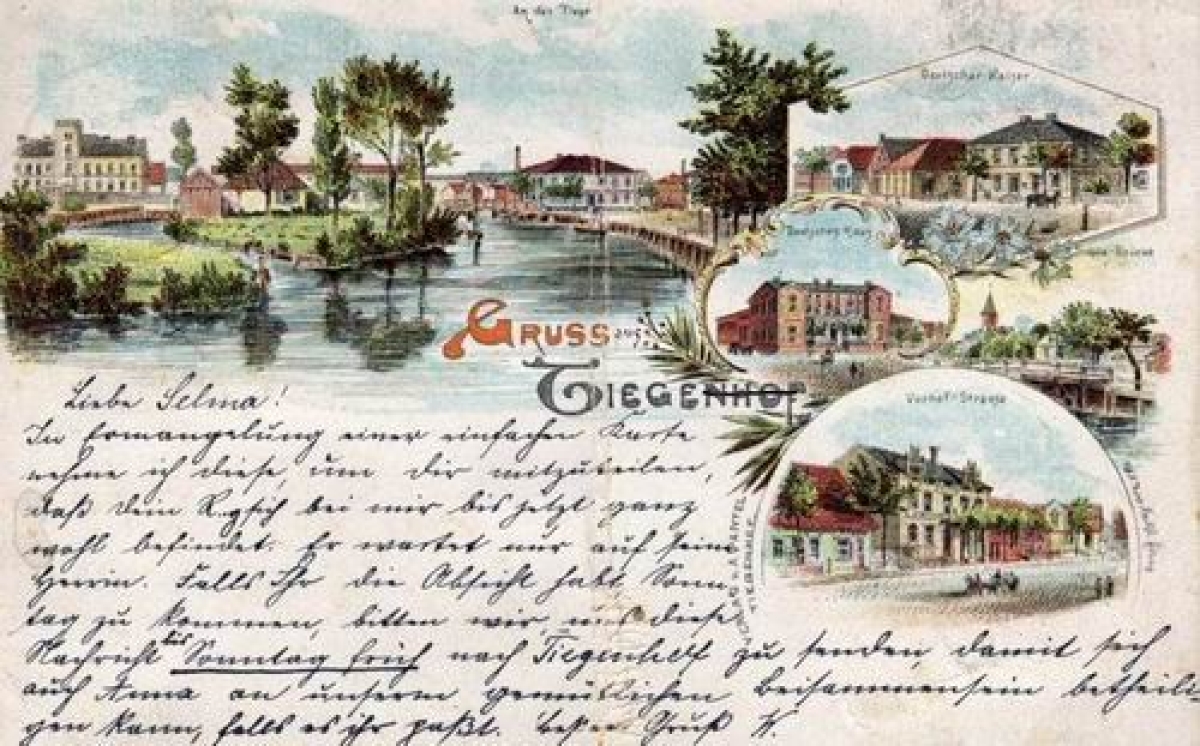 An der Tiege
Deutscher Kaiser
Deutsches Haus
Vorhof-Strasse
GRUSS aus
TIEGENHOF
VERLAG v.
TIEGENHOF
Liebe Selma!
In Ermangelung einer einfachen Karte
nehme ich diese, um dir mitzuteilen,
daß dein sich bei mir bis jetzt ganz
wohl befindet. Er wartet nur auf seine
Herrin. Falls Ihr die Absicht habt Sonn-
tag zu kommen, bitten wir, uns diese
Nachricht bis Sonntag früh nach zu senden, damit sich
auch Anna an unserm gemütlichen Beisammensein betheili
gen kann, falls es ihr paßt. Gruß